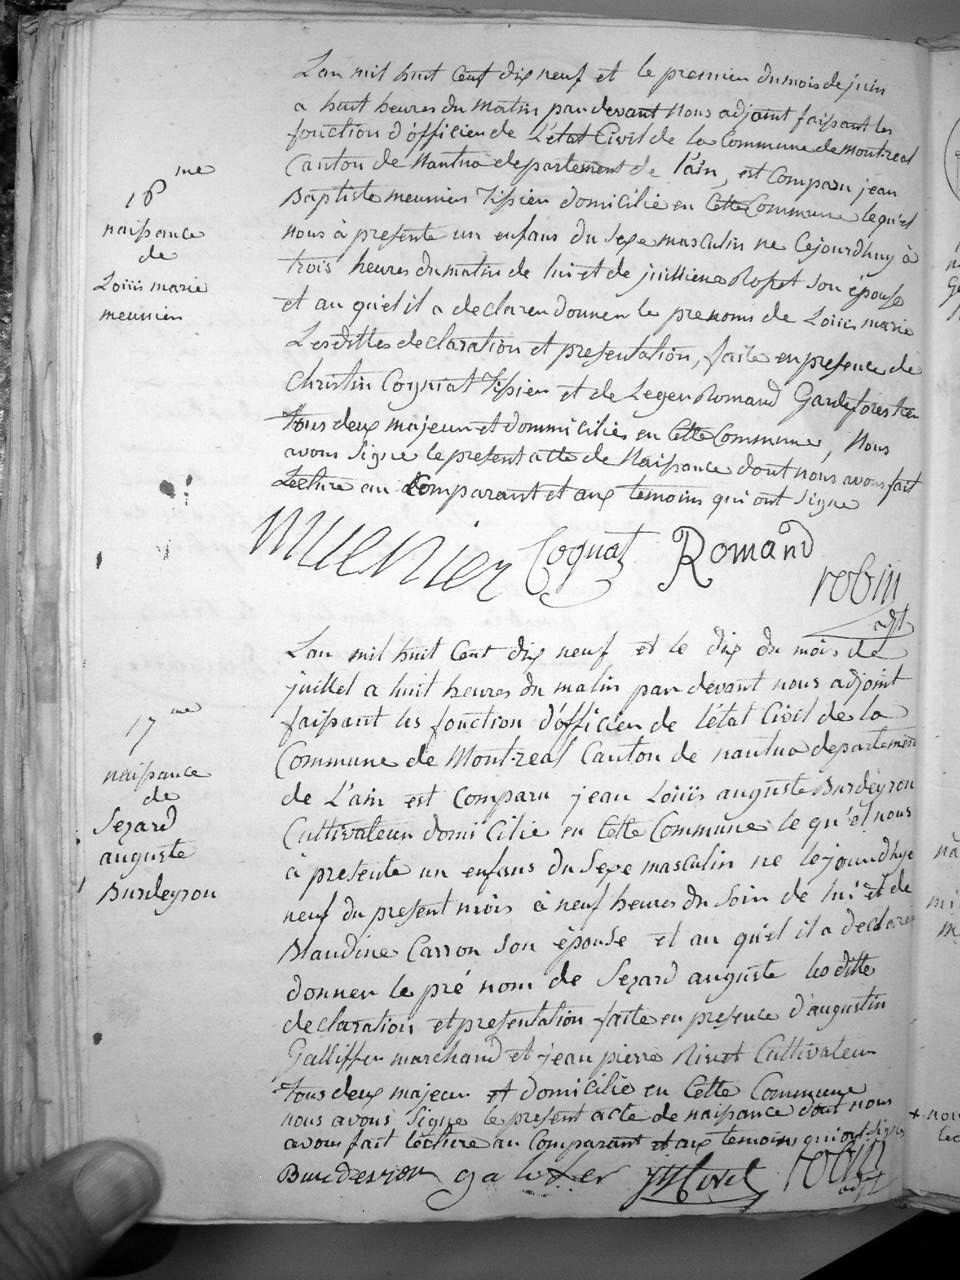 16me
naissance
de
Loüis marie
meunier
L'an mil huit Cent dix neuf et le premier du mois de juin
a huit heures du matin par devant Nous adjoint faissant les
fonction d'officier de L'état Civil de la Commune de Montreal
Canton de Nantua departement de l'ain, est Comparu jean
Baptiste meunier Tissier domicilié en Cette Commune lequ'el
nous à presente un enfans du Sexe masculin ne Cejourdhuy à
trois heures du matin de lui et de jullienne Rosset Son épouse
et au qu'el il a declarer donner les prenoms de Loüis marie
Lesdittes declaration et presentation, faite en presence de
Christin Cogniat Tissier et de Leger Romand Garde forestier
tous deux majeur et dommicilies en Cette Commune, Nous
avons Signe le present acte de Naissance dont nous avons fait
Lecture au Comparant et aux temoins qui ont Signe
Muenier Coguat Romand
robin
adjt
17me
naissance
de
Sezard
auguste
Burdeyron
L'an mil huit Cent dix neuf et le dix du mois de
juillet a huit heures du matin par devant nous adjoint
faissant les fonction d'officier de l'état Civil de la
Commune de Montreal Canton de nantua departement
de L'ain est Comparu jean Loüis auguste Burdeyron
Cultivateur domicilie en Cette Commune le qu'el nous
à presente un enfans du Sexe masculin ne lejourdhuy
neuf du present mois à neuf heures du Soir de lui et de
Blaudine Carron Son épouse et au qu'el il a declarer
donner le pré nom de Sezard auguste les ditte
declaration et presentation faite en presence d'augustin
Galliffer marchand et jean pierre Nivet Cultivateur
tous deux majeur et domicilié en Cette Commune
nous avons Signe le present acte de naissance dont nous
avons fait lecture au Comparant et aux temoins qui ont Signe
Burdeyron robin
adjt